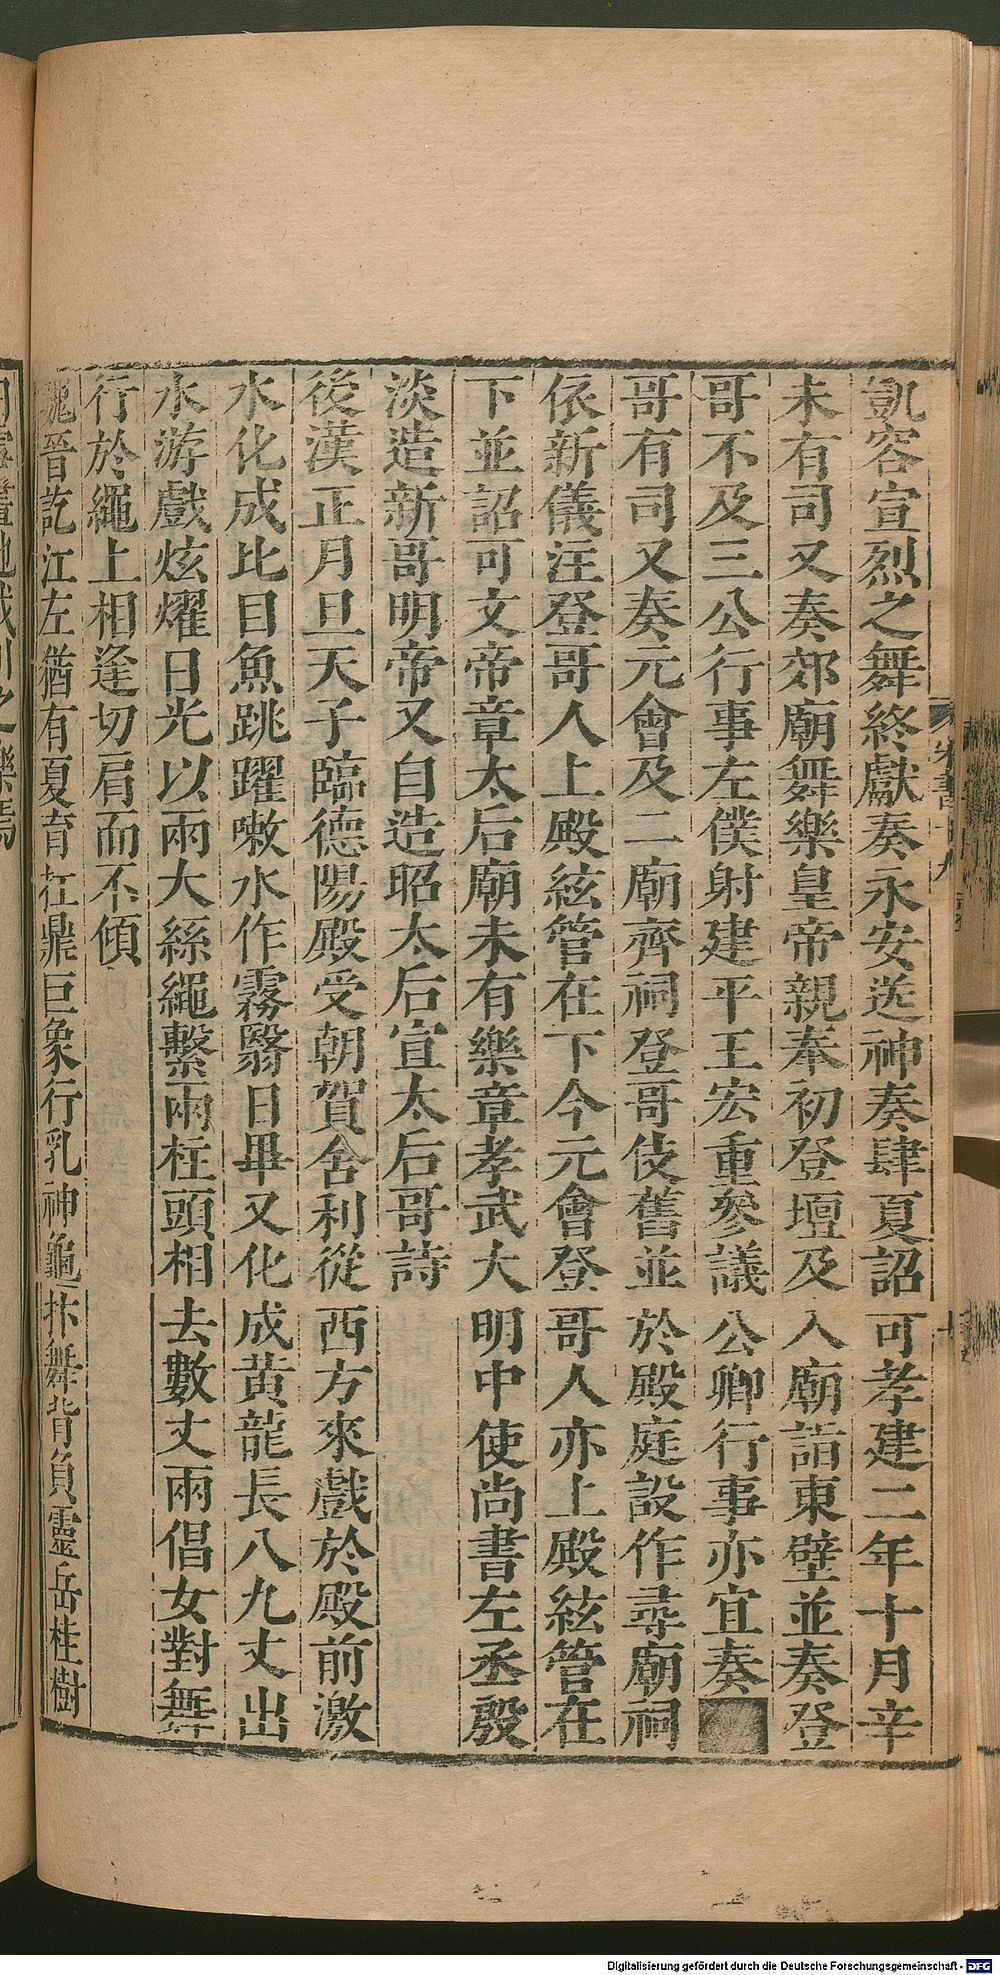 凱容宣烈之舞終獻奏永安送神奏肆夏詔可孝建二年十月辛
未有司又奏郊廟舞樂皇帝親奉初登壇及入廟詣東壁並奏登
哥不及三公行事左僕射建平王宏重參議公卿行事亦宜奏
哥有司又奏元會及二廟齊祠登哥伎舊並於殿庭設作尋廟祠
依新儀注登哥人上殿絃管在下今元會登哥人亦上殿絃管在
下並詔可文帝章太后廟未有樂章孝武大明中使尚書左丞殷
淡造新哥明帝又自造昭太后宣太后哥詩
後漢正月旦天子臨德陽殿受朝賀舍利從西方來戲於殿前激
水化成比目魚跳躍嗽水作霧翳日畢又化成黃龍長八九丈出
水游戲炫燿日光以兩大絲繩繫兩柱頭相去數丈兩倡女對舞
行於繩上相逢切肩而不傾
魏晉訖江左猶有夏育扛鼎巨象行乳神龜抃舞背負靈岳桂樹
宋書
Digitalisierung gefördert durch die Deutsche Forschungsgemeinschaft - DFG